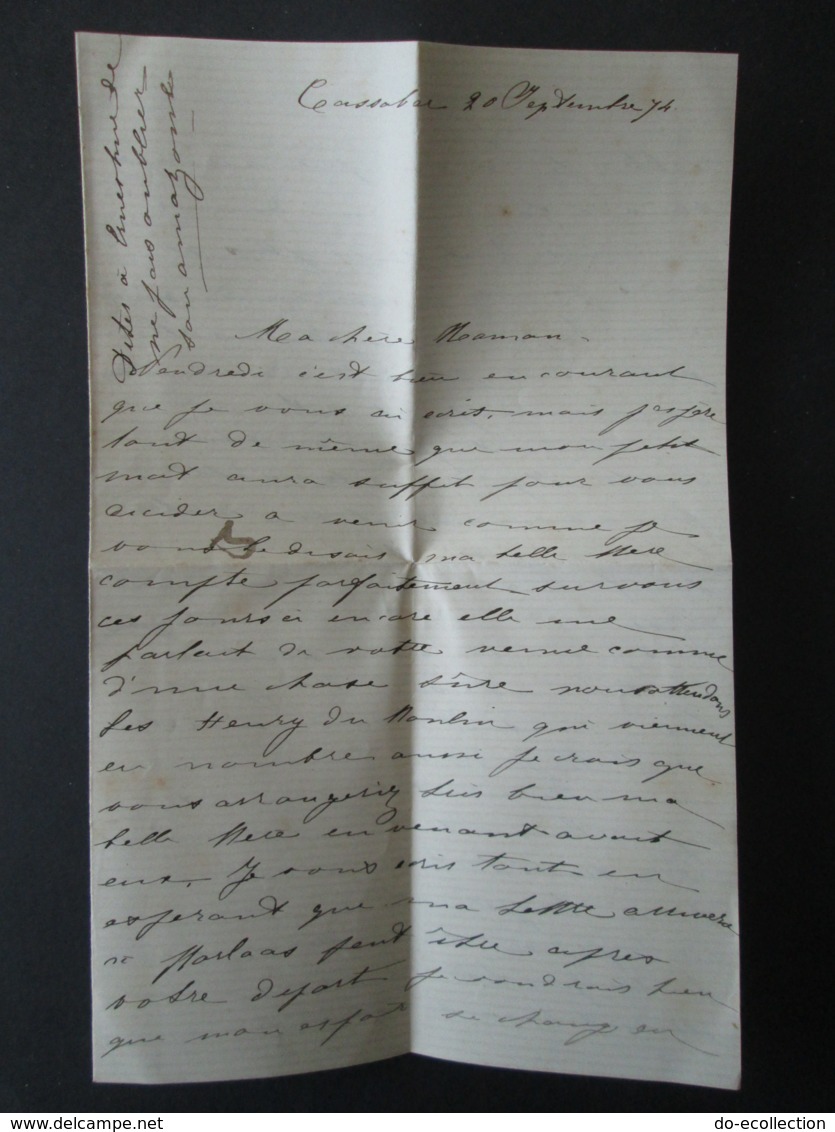 Cassaber 20 Septembre 74
Dites à Ernestine de
ne pas oublier
son amazone
Ma chère Maman.
Vendredi c'est bien en courant
que je vous ai écrit, mais j'espère
tout de même que mon petit
mot aura suffit pour vous
décider a venir comme je
vous le disais ma belle Mere
compte parfaitement sur vous
ces jours ci encore elle me
parlait de votre venue comme
d'une chose sûre nous attendons
les Henry du Moulin qui viennent
en nombre aussi je crois que
vous arrangeriez très bien ma
belle Mere en venant avant
eux. Je vous écris tout en
esperant que ma lettre arrivera
a Morlaas peut être apres
votre depart je voudrais bien
que mon espoir se change en
To visit: www.delcampe.net
do-ecollection